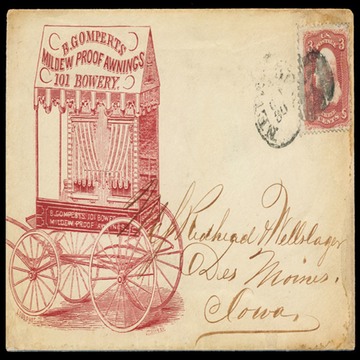 B. GOMPERTS
MILDEW PROOF AWNINGS
101 BOWERY.
B. GOMPERTS 101 BOWERY
MILDEW PROOF AWNINGS
3 3
CENTS
NEW
30
Redhead & Wellslager
Des Moines.
Iowa